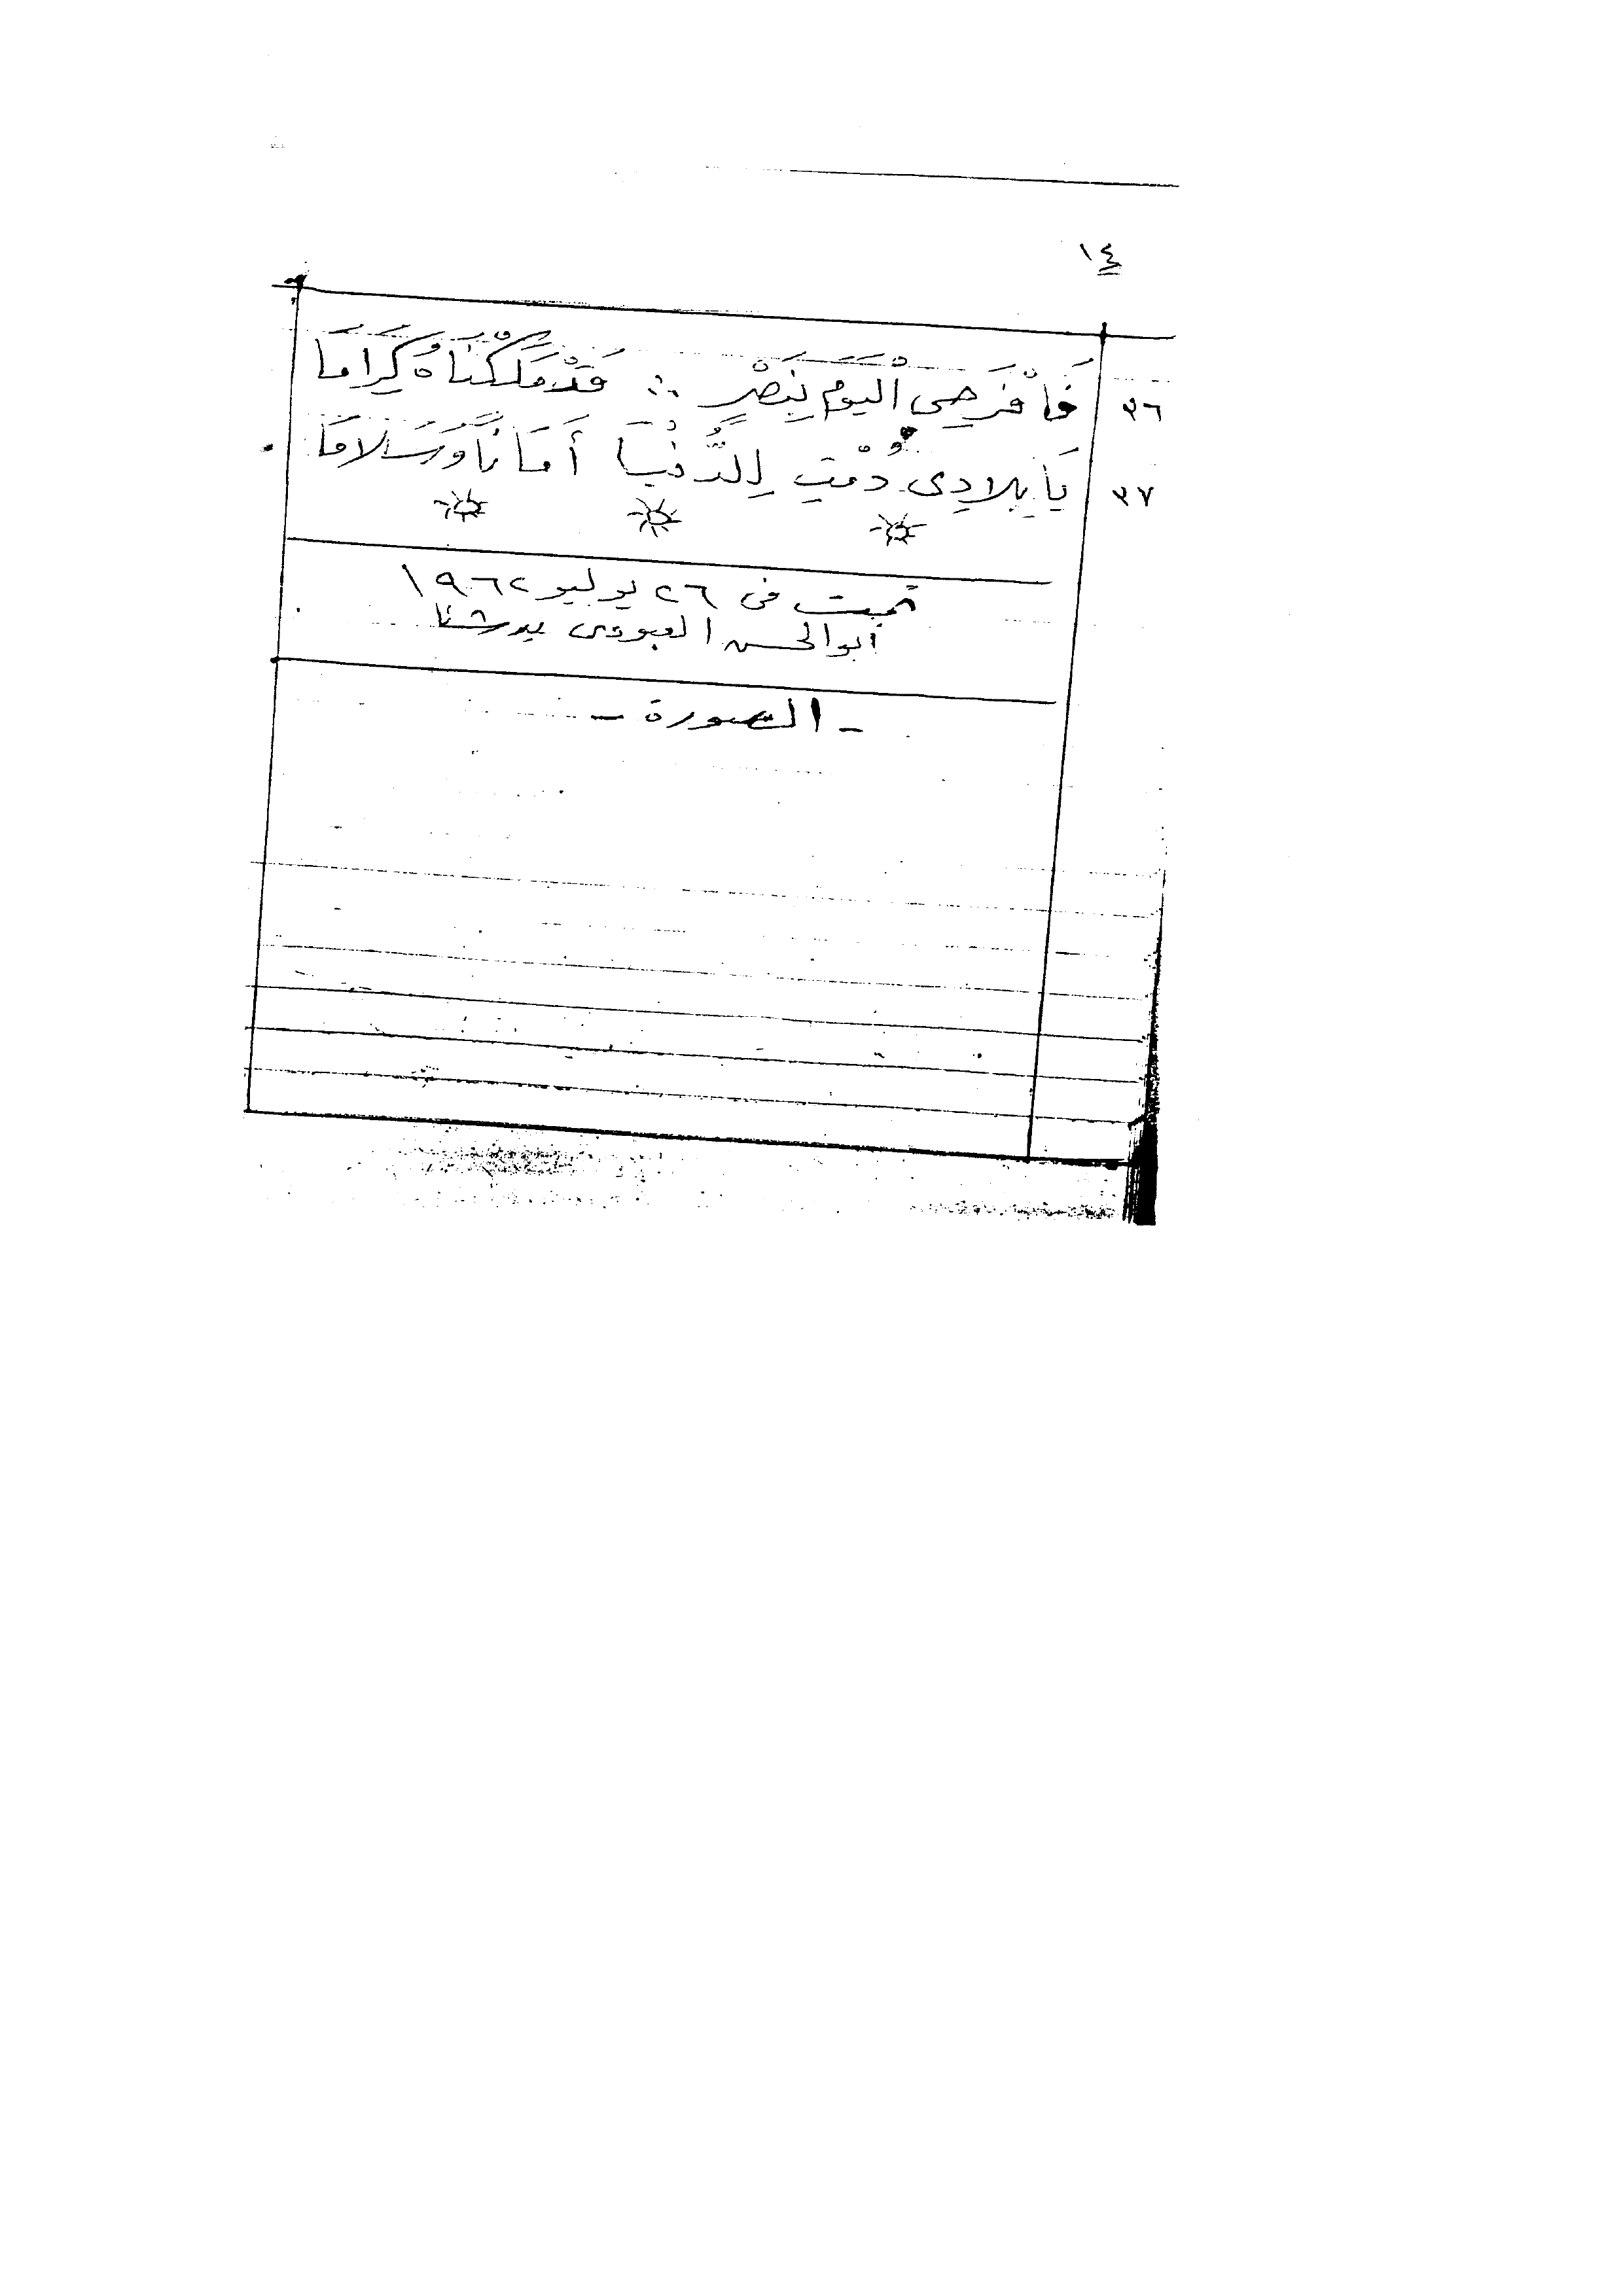 ١٤
٣٦ فَافْرَحِى الْيَومَ بِنَصْرٍ ∴ قَدْ مَلَكْنَاهُ كِرَامَا
٣٧ يَا بِلَادِى دُمْتِ لِلدُّنْيَا أَمَانًا وَسَلَامَا
تمت فى ٢٦ يوليو ١٩٦٢
أبو الحسن
- الصورة -